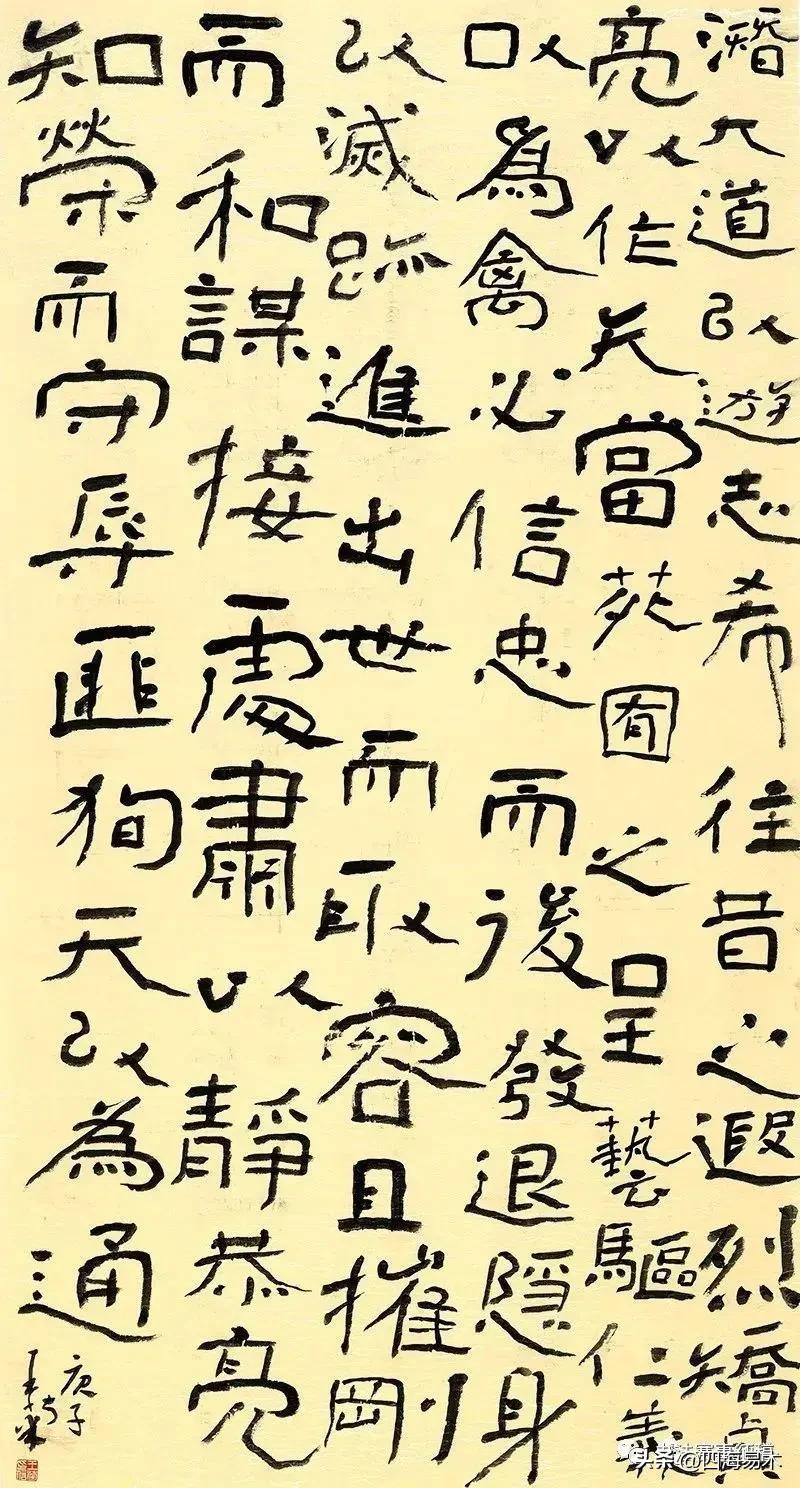 潛大道以遊志希往昔之遐烈矯貞
亮以作矢當苑囿之呈藝驅仁義
以爲禽必信忠而後發退隱身
以滅跡進出世而取容且摧剛
而和謀接處肅以靜恭亮
知榮而守辱匪狥天以為通
庚子
头条@四海易木